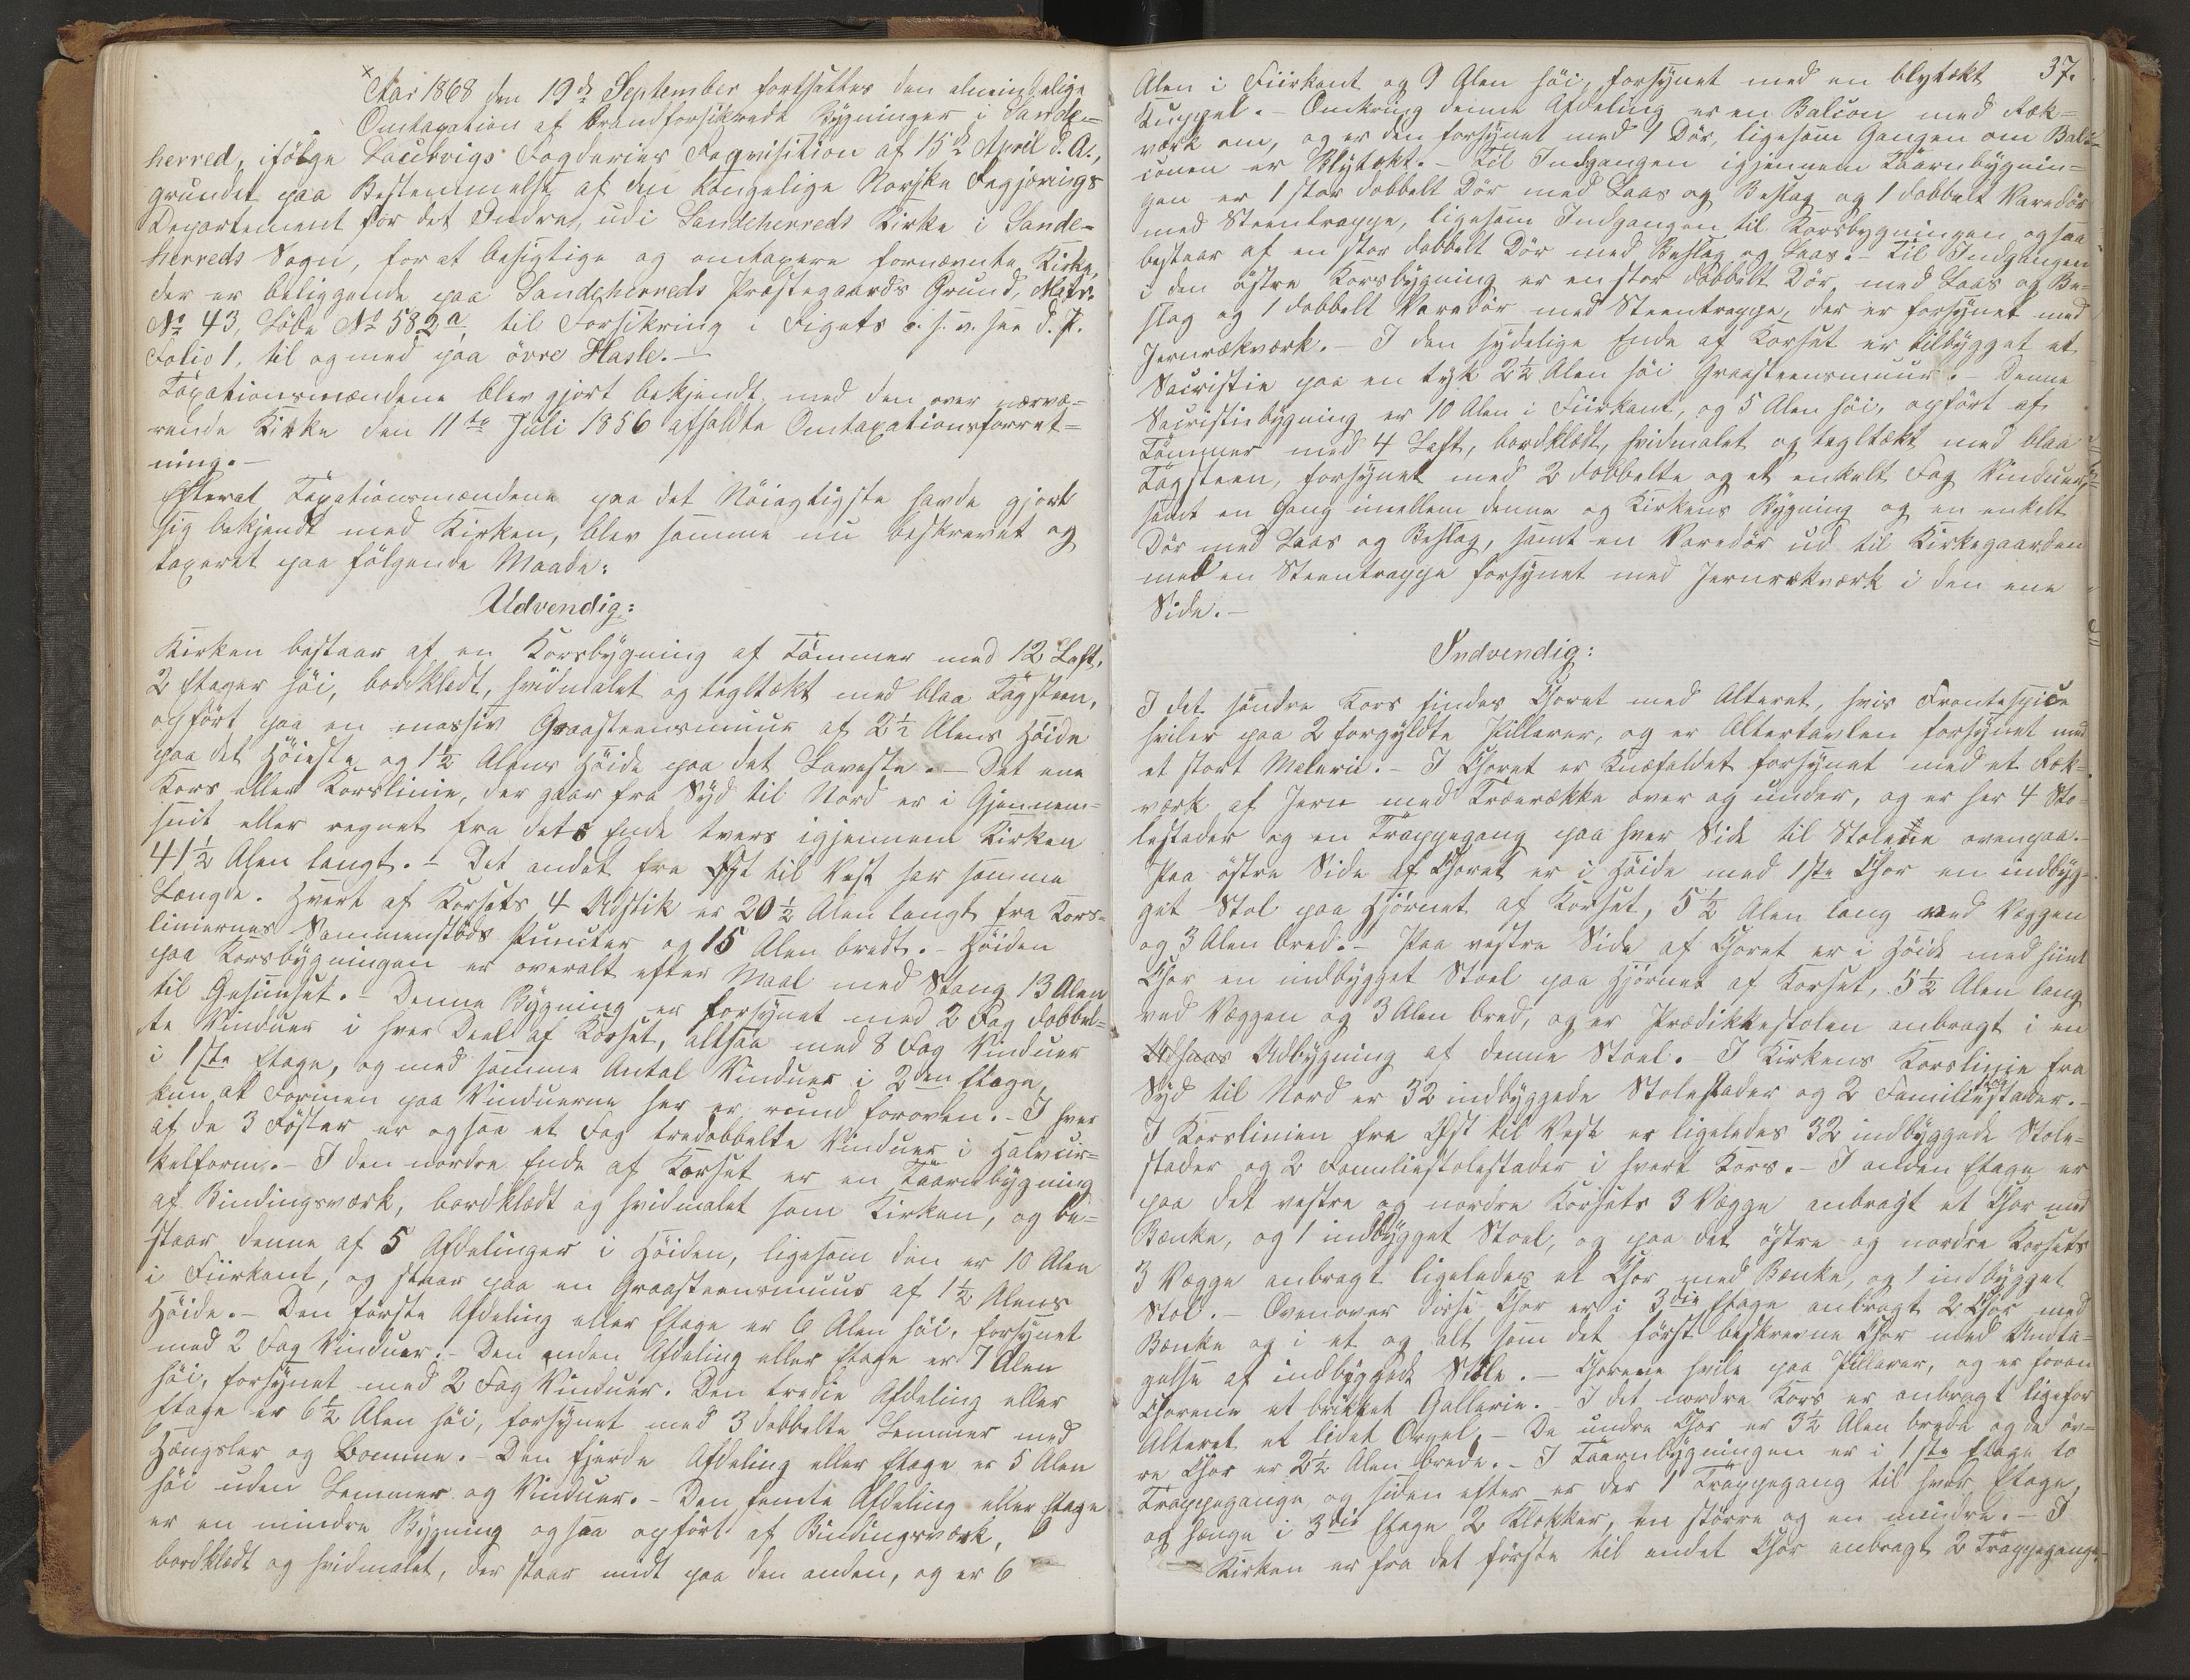 Aar 1868 den 19de September fortsattes den almindelige
Omtaxation af brandforsikrede Bygninger i Sande-
herred, ifölge Laurvigs Fogderies Reqvisition af 15de April d. A.,
grundet paa Bestemmelse af den Kongelige Norske Regjerings
Departement for det Indre, udi Sandeherreds Kirke i Sande-
herreds Sogn, for at besigtige og omtaxere fornævnte Kirke,
der er beliggende paa Sandeherreds Præstegaards Grund, Matr:
No 43, Löbe No 582a til Forsikring i Rigets o. s. v. see d. P.
Folio 1. til og med paa övre Hasle.-
Taxationsmændene blev gjort bekjendt med den over nærvæ-
rende Kirke den 11te Juli 1856 afholdte Omtaxationsforret-
ning.-
Efterat Taxationsmændene paa det Nöiagtigste havde gjort
sig bekjendt med Kirken, blev samme nu beskrevet og
taxeret paa fölgende Maade:
Udvendig:
Kirken bestaar af en Korsbygning af Tömmer med 12 Laft,
2 Etager höi, bordklædt, hvidmalet og tegltækt med blaa Tagsteen,
opfört paa en massiv Graasteensmuur af 2½ Alens Höide
paa det Höieste og 1½ Alens Höide paa det Laveste.- Det ene
Kors eller Korslinie, der gaar fra Syd til Nord er i Gjennem-
snit eller regnet fra dets Ende tvers igjennem Kirken
41½ Alen langt.- Det andet fra Öst til Vest har samme
Længde. Hvert af Korsets 4 er 20½ Alen langt fra Kors-
liniernes Sammenstöds Puncter og 15 Alen bredt.- Höiden
paa Korsbygningen er overalt efter Maal med Stang 13 Alen
til Gesimset.- Denne Bygning er forsynet med 2 Fag dobbel-
te Vinduer i hver Deel af Korset, altsaa med 8 Fag Vinduer
i 1ste Etage, og med samme Antal Vinduer i 2den Etage,
kun at Formen paa Vinduerne her er rund foroven.- I hver
af de 3 Röster er ogsaa et Fag tredobbelte Vinduer i Halvcir-
kelform.- I den nordre Ende af Korset er en Taarnbygning
af Bindingsværk, bordklædt og hvidmalet som Kirken, og be-
staar denne af 5 Afdelinger i Höiden, ligesom den er 10 Alen
i Fiirkant, og staar paa en Graasteensmuur af 1½ Alens
Höide.- Den förste Afdeling eller Etage er 6 Alen höi, forsynet
med 2 Fag Vinduer.- Den anden Afdeling eller Etage er 7 Alen
höi, forsynet med 2 Fag Vinduer. Den tredie Afdeling eller
Etage er 6½ Alen höi, forsynet med 3 dobbelte Lemmer med
Hængsler og Bomme.- Den fjerde Afdeling eller Etage er 5 Alen
höi uden Lemmer og Vinduer.- Den femte Afdeling eller Etage
er en mindre Bygning ogsaa opfört af Bindingsværk,
bordklædt og hvidmalet, der staar midt paa den anden, og er 6
37.
Alen i Fiirkant og 9 Alen höi, forsynet med en blytækt
Kuppel.- Omkring denne Afdeling er en Balcon med Ræk-
værk om, og er den forsynet med 1 Dör, ligesom Gangen om Bal-
conen er Blytækt.- Til Indgangen igjennem Taarnbygnin-
gen er 1 stor dobbelt Dör med Laas og Beslag og 1 dobbelt Varedör
med Steentrappe, ligesom Indgangen til Korsbygningen ogsaa
bestaar af en stor dobbelt Dör med Beslag og Laas.- Til Indgangen
i den östre Korsbygning er en stor dobbelt Dör med Laas og Be-
slag og 1 dobbelt Varedör med Steentrappe, der er forsynet med
Jernrækværk.- I den sydelige Ende af Korset er tilbygget et
Sacristie paa en tyk 2½ Alen höi Graasteensmuur.- Denne
Sacristiebygning er 10 Alen i Fiirkant, og 5 Alen höi, opfört af
Tömmer med 4 Laft, bordklædt, hvidmalet og tegltækt med blaa
Tagsteen, forsynet med 2 dobbelte og et enkelt Fag Vinduer,
samt en Gang imellem denne og Kirkens Bygning og en enkelt
Dör med Laas og Beslag, samt en Varedör ud til Kirkegaarden
med en Steentrappe forsynet med Jernrækværk i den ene
Side.-
Indvendig:
I det söndre Kors findes Choret med Alteret, hvis Frontespice
hviler paa 2 forgyldte Pillarer, og er Altertavlen forsynet med
et stort Malerie.- I Choret er Knæfaldet forsynet med et Ræk-
værk af Jern med Trærække over og under, og er her 4 Sto-
lestader og en Trappegang paa hver Side til Stolene ovenpaa.-
Paa östre Side af Choret er i Höide med 1ste Chor en indbyg-
get Stol paa Hjörnet af Korset, 5½ Alen lang ved Væggen
og 3 Alen bred.- Paa vestre Side af Choret er i Höide med hiint
Chor en indbygget Stoel paa Hjörnet af Korset, 5½ Alen lang
ved Væggen og 3 Alen bred, og er Prædikkestolen anbragt i en
Udbygning af denne Stoel.- I Kirkens Korslinie fra
Syd til Nord er 32 indbyggede Stolestader og 2 Familiestader.-
I Korslinien fra Öst til Vest er ligeledes 32 indbyggede Stole-
stader og 2 Familiestolestader i hvert Kors.- I anden Etage er
paa det vestre og nordre Korsets 3 Vægge anbragt et Chor med
Bænke, og 1 indbygget Stoel, og paa det östre og nordre Korsets
3 Vægge anbragt ligeledes et Chor med Bænke, og 1 indbygget
Stol.- Ovenover disse Chor er i 3die Etage anbragt 2 Chor med
Bænke og i et og alt som det först beskrevne Chor med Undta-
gelse af indbyggede Stole.- Chorene hvile paa Pillarer, og er foran
Chorene et brikket Gallerie.- I det nordre Kors er anbragt ligefor
Alteret et lidet Orgel.- De undre Chor er 3½ Alen brede og de öv-
re Chor er 2½ Alen brede.- I Taarnbygningen er i 1ste Etage to
Trappegange og siden efter er der 1 Trappegang til hver Etage,
og hænge i 3die Etage 2 Klokker, en större og en mindre.- I
Kirken er fra det förste til andet Chor anbragt 2 Trappegange,